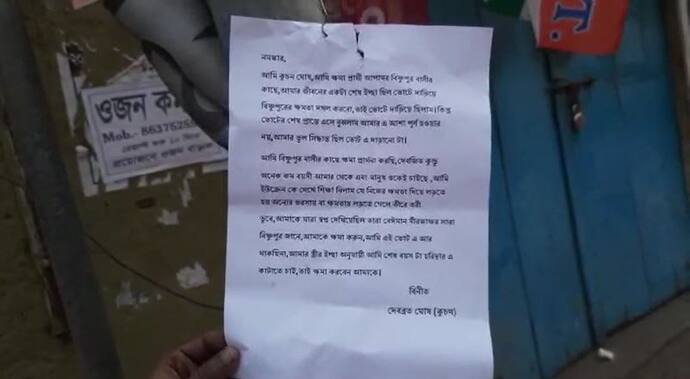 নমস্কার,
আমি কুচন ঘোষ,আমি ক্ষমা প্রার্থী আপামর বিষ্ণুপুর বাসীর
কাছে,আমার জীবনের একটা শেষ ইচ্ছা ছিল ভোটে দাড়িয়ে
বিষ্ণুপুরের ক্ষমতা দখল করবো,তাই ভোটে দাড়িয়ে ছিলাম।কিন্তু
ভোটের শেষ প্রান্তে এসে বুঝলাম আমার এ আশা পূর্ণ হওয়ার
নয়,আমার ভুল সিদ্ধান্ত ছিল ভোট এ দাড়ানো টা।
আমি বিষ্ণুপুর বাসীর কাছে ক্ষমা প্রার্থনা করছি,দেবজিত কুন্ডু
অনেক কম বয়সী আমার থেকে এবং মানুষ ওকেই চাইছে ,আমি
ইউক্রেন কে দেখে শিক্ষা নিলাম যে নিজের ক্ষমতা দিয়ে লড়তে
হয় অন্যের ভরসায় বা ক্ষমতায় লড়তে গেলে তীরে তরী
ডুবে,আমাকে যারা স্বপ্ন দেখিয়েছিল তারা বেঈমান মীরজাফর সারা
বিষ্ণুপুর জানে,আমাকে ক্ষমা করুন,আমি এই ভোট এ আর
থাকছিনা,আমার স্ত্রীর ইচ্ছা অনুযায়ী আমি শেষ বয়স টা হরিদ্বার এ
কাটাতে চাই,তাই ক্ষমা করবেন আমাকে।
বিনীত
দেবব্রত ঘোষ (কুচন)
ওজন
Mob.-
T.